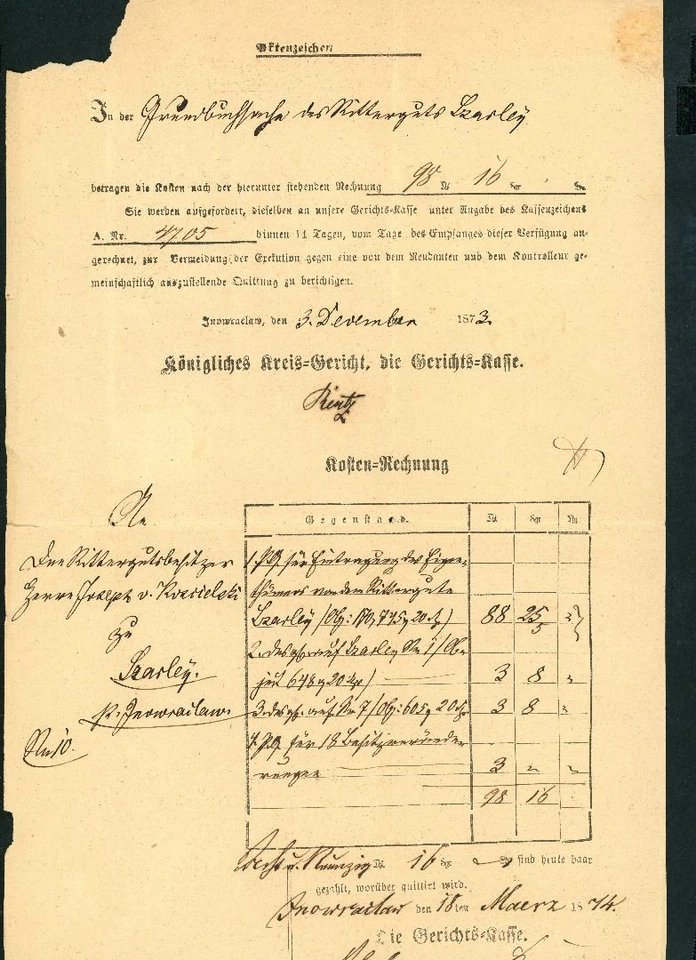 Aktenzeichen
In der Grundbuchsache des Ritterguts Szarley
betragen die Kosten nach der hierunter stehenden Rechnung 98 16
Sie werden aufgefordert, dieselben an unsere Gerichts-Kasse unter Angabe des Kassenzeichens
A. Nr. 4705 binnen 14 Tagen, vom Tage des Empfanges dieser Verfügung an-
gerechnet, zur Vermeidung der Exekution gegen eine von dem Rendanten und dem Kontrolleur ge-
meinschaftlich auszustellende Quittung zu berichtigen.
Inowraclaw, den 3. December 1873.
Königliches Kreis-Gericht, die Gerichts-Kasse.
Kosten-Rechnung
An
Den Rittergutsbesitzer
Herrn Joseph v. Kościelski
zu
Szarley.
Nr 10.
Gegenstand. Sgr
für Eintragung des Eigen-
thümers von dem Rittergute
Szarley 88 25
2. desgl. auf Szarley Nr 1 / Ob-
jekt 648 3 8
3. desgl. auf Nr 7 3 8
für 18 Besitzverände-
rungen 3
98 16
Acht u. Neunzig 16 Sgr sind heute baar
gezahlt, worüber quittirt wird.
Inowraclaw den 18ten Maerz 1874.
Die Gerichts-Kasse.